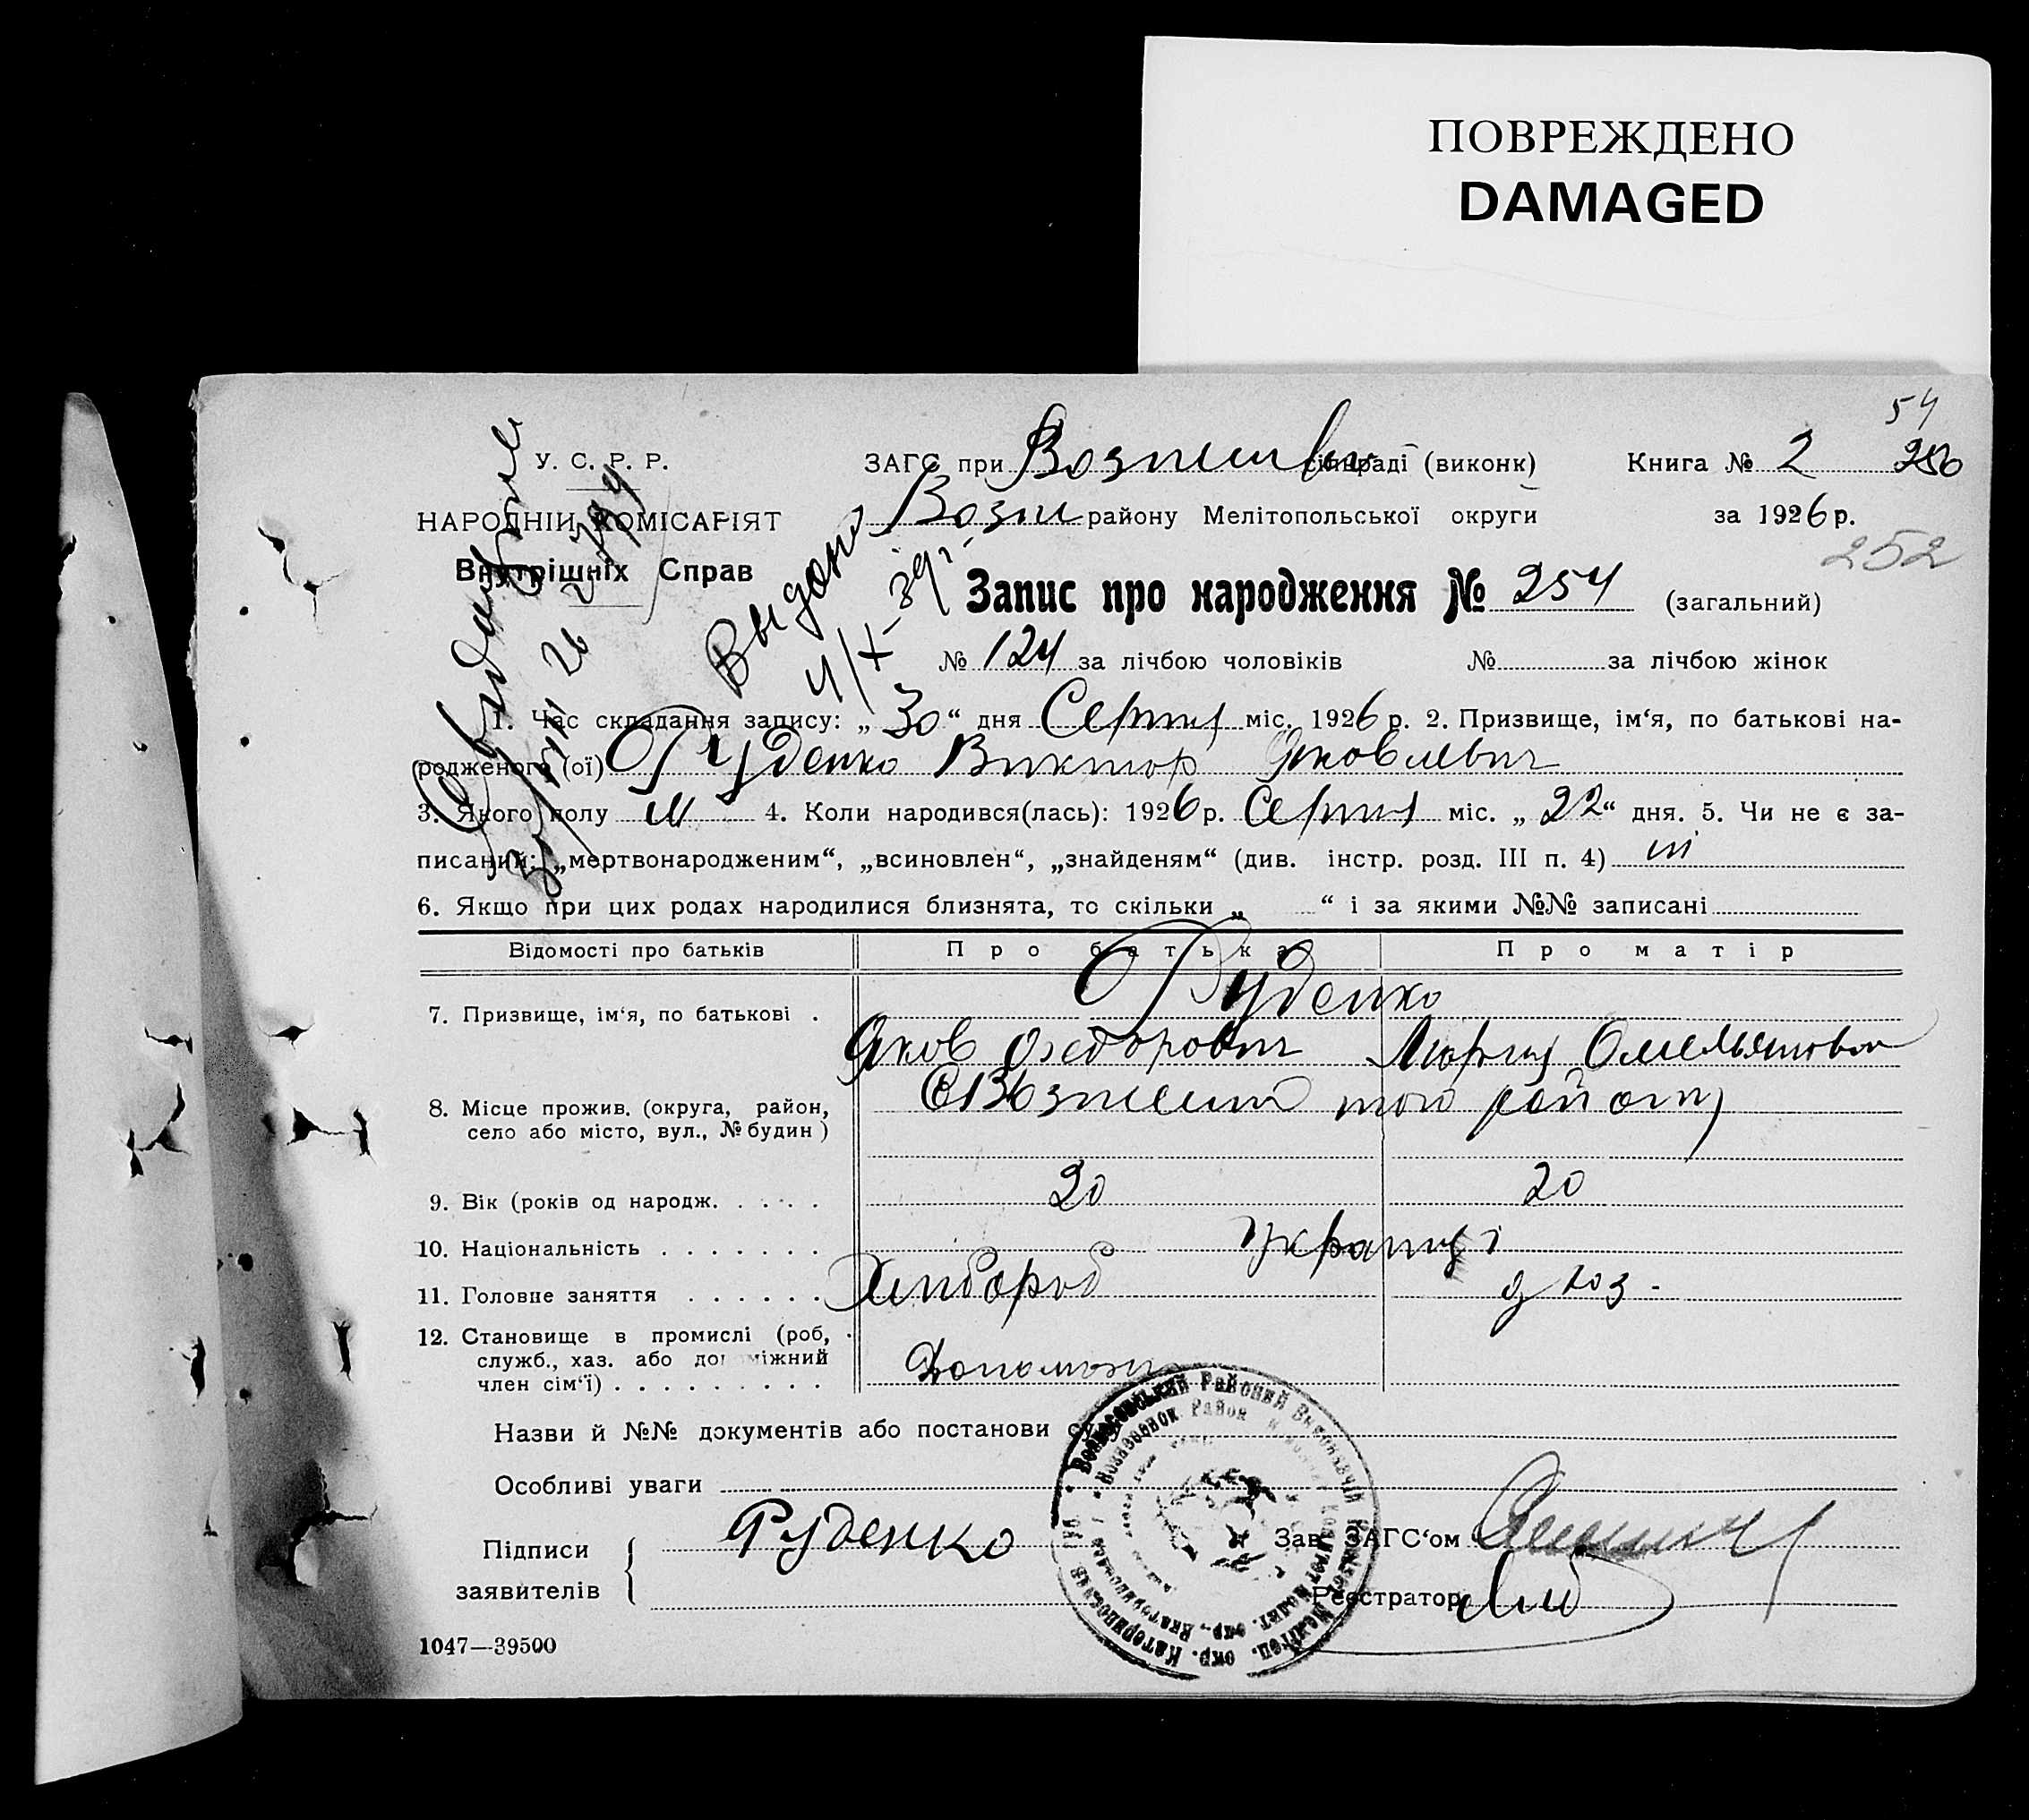 ПОВРЕЖДЕНО
DAMAGED
54
У. С. Р. Р.
ЗАГС при сільраді (виконк) Книга № 2 250
НАРОДНІЙ КОМІСАРІЯТ
Возн району Мелітопольської округи за 1926 р.
252
Внутрішніх Справ
Видано
4/X-39г.
Запис про народження № 254 (загальний)
№ 124 за лічбою чоловіків № за лічбою жінок
1. Час складання запису: „30“ дня Серпня міс. 1926 р. 2. Призвище, ім‘я, по батькові на-
родженого (ої) Руденко Виктор Яковлевич
3. Якого полу м 4. Коли народився(лась): 1926 р. Серпня міс. „22“ дня. 5. Чи не є за-
писаний: „мертвонародженим“, „всиновлен“, „знайденям“ (див. інстр. розд. III п. 4) ні
6. Якщо при цих родах народилися близнята, то скільки „ “ і за якими №№ записані
Відомості про батьків Про батька Про матір
Руденко
7. Призвище, ім‘я, по батькові .
Яков Федорович Мария Омельяновна
8. Місце прожив. (округа, район,
село або місто, вул., № будин)
того району
9. Вік (років од народж. . . . . 20 20
10. Національність . . . . . . . Українці
11. Головне заняття . . . . . . Хлібороб д хоз.
12. Становище в промислі (роб,
служб., хаз. або допоміжний
член сім‘ї) . . . . . . . . .
Допоможн
Назви й №№ документів або постанови
Особливі уваги
Підписи
заявителів
Руденко
Зав. ЗАГС‘ом
Реєстратор
1047—39500